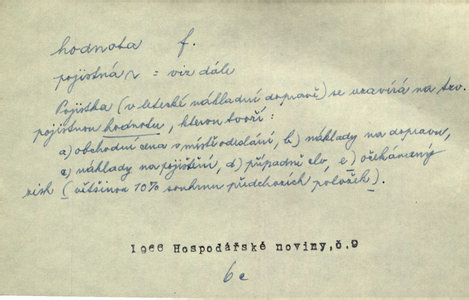 hodnota f.
pojistná ~ = viz dále
Pojistka (v letecké nákladní dopravě) se uzavírá na tzv.
pojistnou hodnotu, kterou tvoří:
a) obchodní cena v místě odeslání, b) náklady na dopravu,
c) náklady na pojištění, d) případné clo, e) očekávaný
zisk (většinou 10% souhrnu předchozích položek).
1966 Hospodářské noviny,č.9
6c